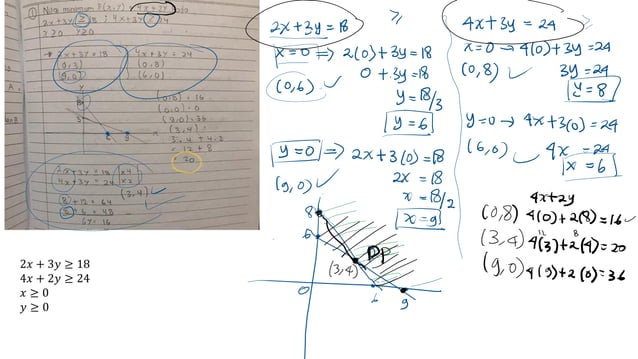 ① Nilai minimum F(x,y) 4x+2y
2x+3y ≥ 18 ; 4x+3y ≥ 24
x ≥ 0 y ≥ 0
2x+3y = 18
4x+3y = 24
(0,8)
(9,0)
(6,0)
y
(0,8) = 16
(3,4)
= 12 + 8
20
2x+3y = 18 x4
4x+3y = 24 x2
(3,4)
2x + 3y ≥ 18
4x + 2y ≥ 24
x ≥ 0
y ≥ 0
2x+3y = 18 ≥
x=0 ⇒ 2(0)+3y=18
(0,6) ✓ 0+3y=18
y=18/3
y=6
y=0 ⇒ 2x+3(0)=18
(9,0) ✓ 2x=18
x=18/2
x=9
8
6
DP
(3,4)
0 6 9
4x+3y = 24 ≥
x=0 → 4(0)+3y=24
(0,8) ✓ 3y=24
y=8
y=0 → 4x+3(0)=24
(6,0) ✓ 4x=24
x=6
4x+2y
(0,8) 4(0)+2(8)=16 ✓
12 8
(3,4) 4(3)+2(4)=20
(9,0) 4(9)+2(0)=36